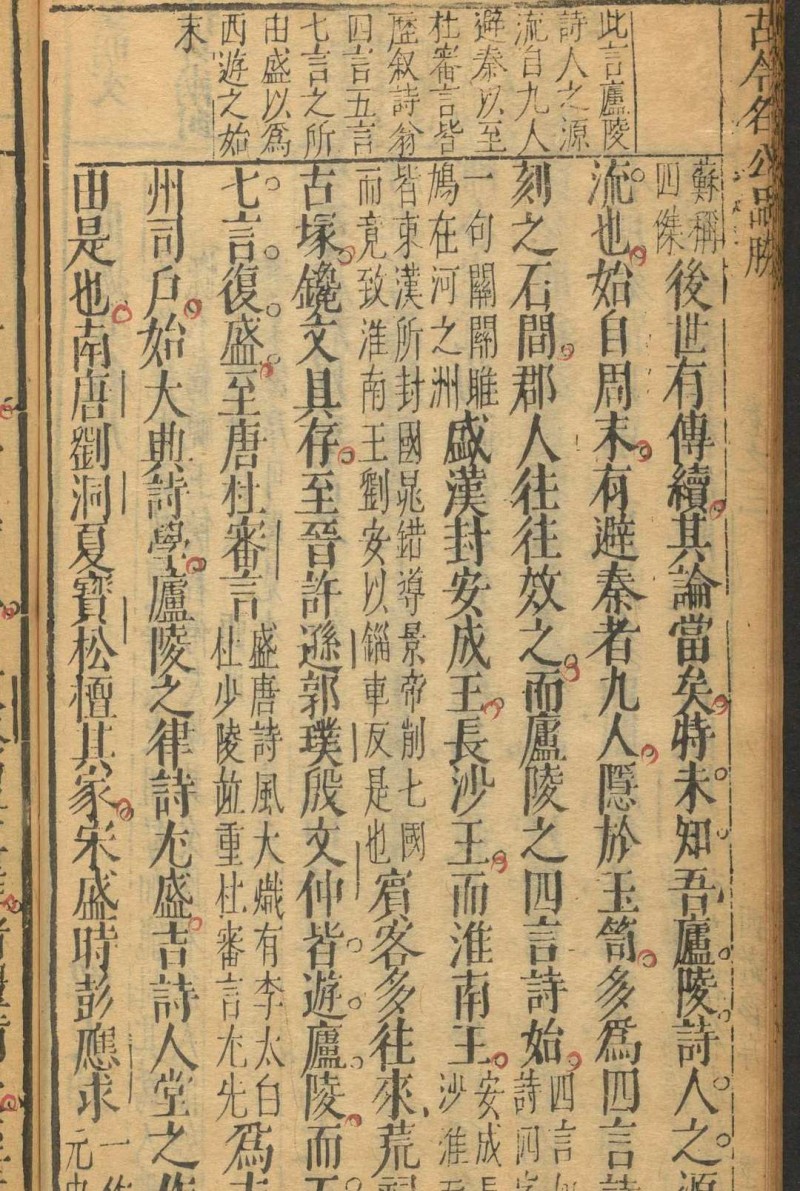 古今名公品勝
此言廬陵
詩人之源
流自九人
避秦以至
杜審言皆
歷叙詩翁
四言五言
七言之所
由盛以為
西遊之始
末
蘇稱
四傑
後世有傳續其論當矣特未知吾廬陵詩人之源
流也始自周末有避秦者九人隱於玉笥多爲四言詩
刻之石間郡人往往效之而廬陵之四言詩始
四言
詩問
一句關關雎
鳩在河之洲
盛漢封安成王長沙王而淮南王
安成長
沙淮
皆東漢所封國晁錯導景帝削七國
而竟致淮南王劉安以錙車反是也
賓客多往來荒
古塚鑱文具存至晉許遜郭璞殷文仲皆遊廬陵而
七言復盛至唐杜審言
盛唐詩風大熾有李太白
杜少陵並重杜審言尢先
爲
州司戶始大典詩學廬陵之律詩尢盛吉詩人堂之作
由是也南唐劉洞夏寳松檀其家宋盛時彭應求
一作
元